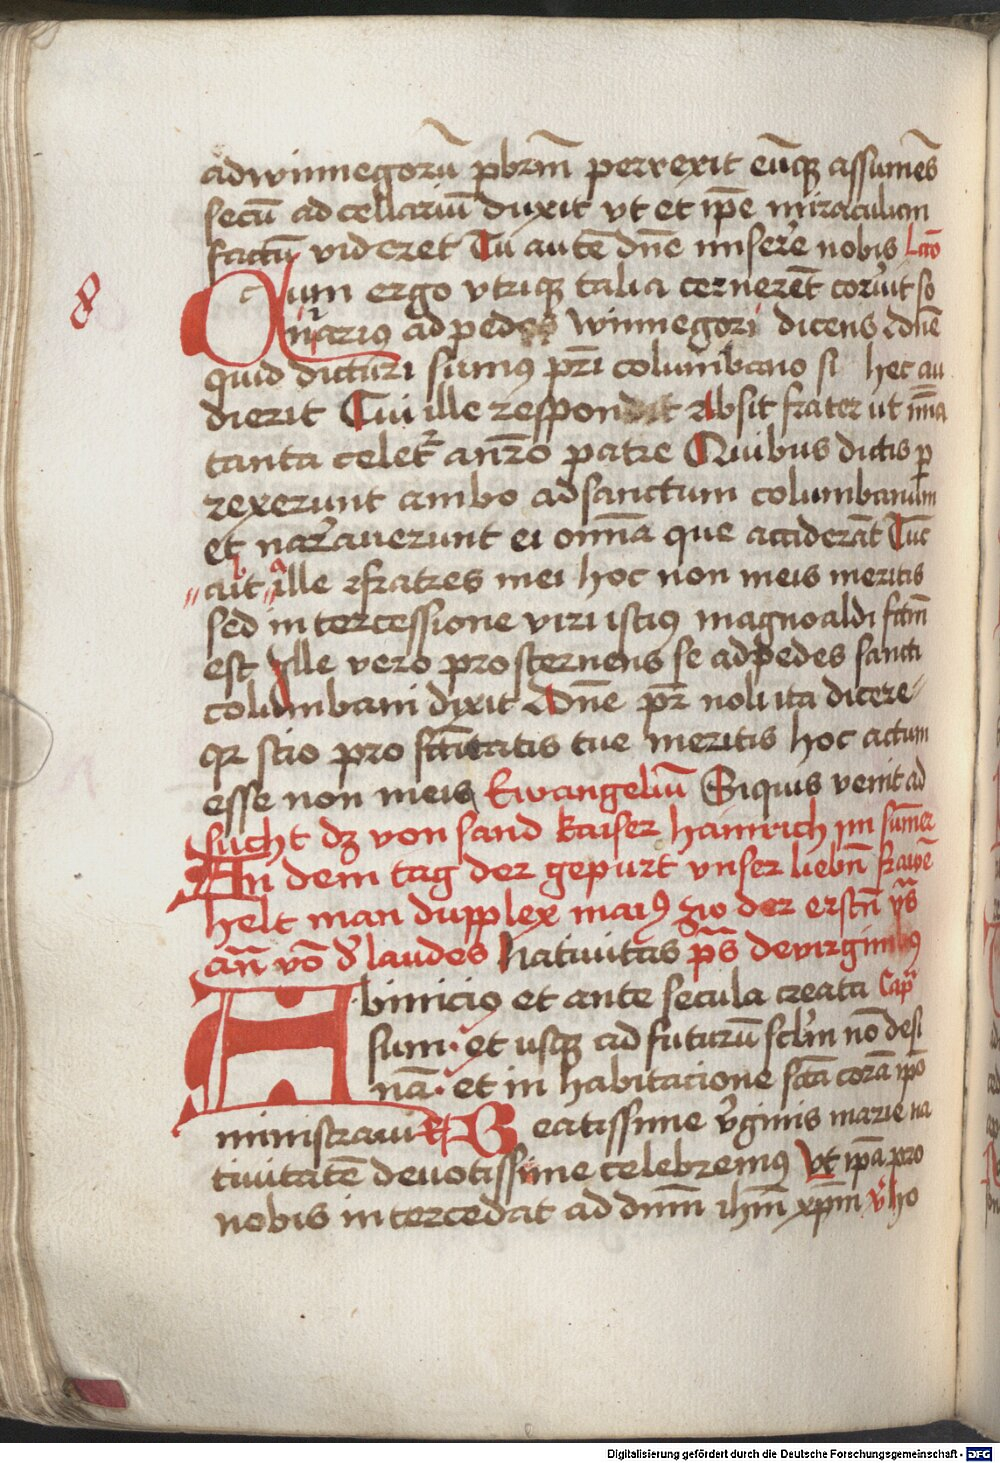 adwinnegorū pbrm̄ perrexit eūq; assumēs
secū ad cellariū duxit vt et ip̄e miraculum
factū videret Tu autē dn̄e miserē nobis Lcō
8
Cum ergo vtriq; talia cernerēt coruit so
narius ad pedes winnegori dicens dn̄e
quid dicturi sumus pr̄i columbano si hec au
dierit Cui ille respondit Absit frater ut
tanta celet᷑ a nr̄o patre Quibus dictis p
rexerunt ambo ad sanctum columbanum
et nar̄auerunt ei om̄ia que acciderāt Tūc
ait ille fratres mei hoc non meis meritis
sed intercessione viri istius magnoaldi fcm̄
est Ille vero prosternens se ad pedes sancti
columbani dixit dn̄e pr̄ noli ita dicere
qr scio pro sc̄titatis tue meritis hoc actum
esse non meis Ewangeliū Siquis venit ad
sucht dz von sand kaiser hainrich im sum̄er
An dem tag der gepurt vnser liebn̄ frawē
helt man dupplex maiꝰ zo der erstn̄ vs̄
an̄ vō d' laudes Natiuitas ps̄ de virginibꝰ
Abinicio et ante secula creata Capᵐ
sum et usq; ad futurū sclm̄ nō desi
nā et in habitacione sc̄ta corā ip̄o
ministraui R Beatissime v̄ginis marie na
tiuitatē deuotissime celebremus Vt ip̄a pro
nobis intercedat ad dn̄m ihm̄ xp̄m v̄ ho
Digitalisierung gefördert durch die Deutsche Forschungsgemeinschaft - DFG